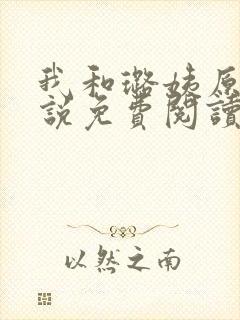 我和璐姨原
說免費閱讀
以然之南